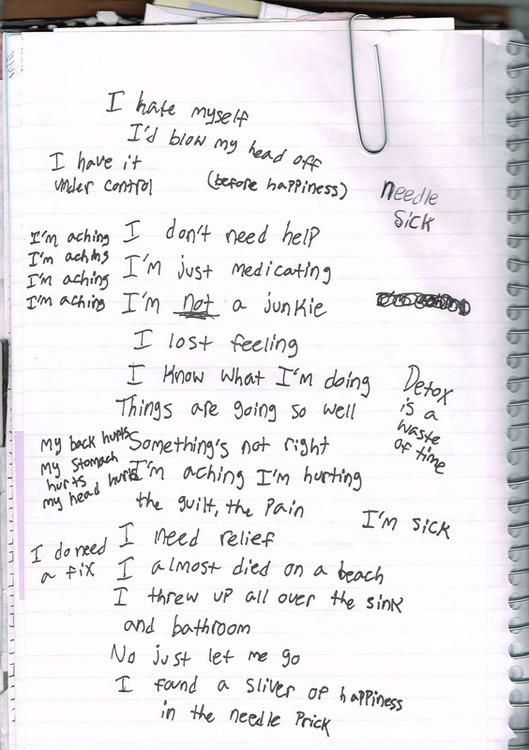 I hate myself
I'd blow my head off
I have it
under control
(before happiness)
needle
sick
I'm aching
I'm aching
I'm aching
I'm aching
I don't need help
I'm just medicating
I'm not a junkie
I lost feeling
I know what I'm doing
Things are going so well
Detox
is a
waste
of time
My back hurts
my stomach
hurts
my head hurts
Something's not right
I'm aching I'm hurting
the guilt, the pain
I'm sick
I do need
a fix
I need relief
I almost died on a beach
I threw up all over the sink
and bathroom
No just let me go
I found a sliver of happiness
in the needle prick